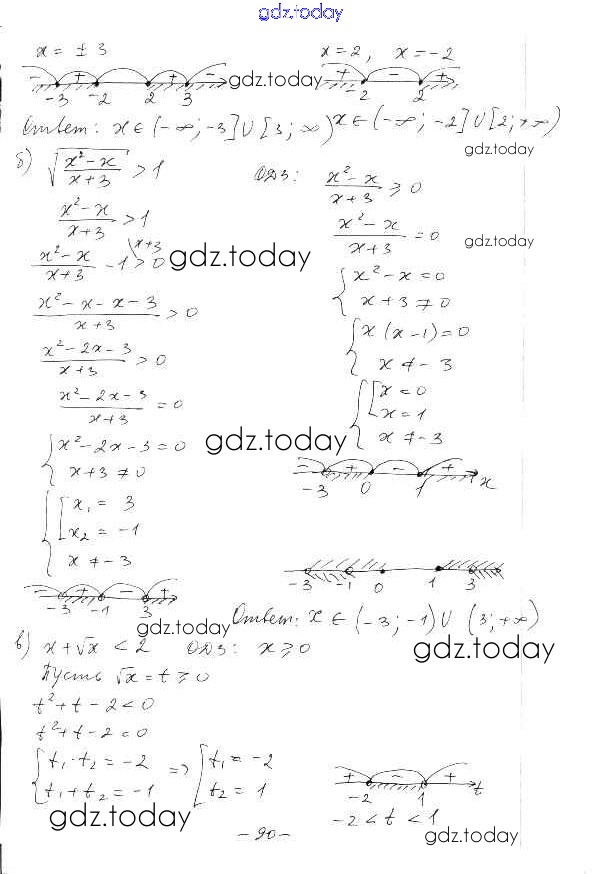 gdz.today
x = ± 3
x = 2, x = -2
- + - + -
-3 -2 2 3
gdz.today
+ - +
-2 2
Ответ: x ∈ (-∞; -3] ∪ [3; ∞) x ∈ (-∞; -2] ∪ [2; +∞)
gdz.today
б) √((x² - x)/(x + 3)) > 1
ОДЗ: (x² - x)/(x + 3) ≥ 0
(x² - x)/(x + 3) > 1
(x² - x)/(x + 3) = 0
gdz.today
(x² - x)/(x + 3) - 1 \x+3 > 0
gdz.today
{ x² - x = 0
x + 3 ≠ 0
(x² - x - x - 3)/(x + 3) > 0
{ x (x - 1) = 0
x ≠ -3
(x² - 2x - 3)/(x + 3) > 0
{ [ x = 0
x = 1
x ≠ -3
(x² - 2x - 3)/(x + 3) = 0
{ x² - 2x - 3 = 0
x + 3 ≠ 0
gdz.today
- + - +
-3 0 1 x
{ [ x₁ = 3
x₂ = -1
x ≠ -3
-3 -1 0 1 3
- + - +
-3 -1 3
Ответ: x ∈ (-3; -1) ∪ (3; +∞)
gdz.today
в) x + √x < 2 ОДЗ: x ≥ 0
gdz.today
Пусть √x = t ≥ 0
t² + t - 2 < 0
t² + t - 2 = 0
{ t₁ · t₂ = -2
t₁ + t₂ = -1
=> [ t₁ = -2
t₂ = 1
+ - +
-2 1 t
-2 < t < 1
gdz.today
- 90 -
gdz.today